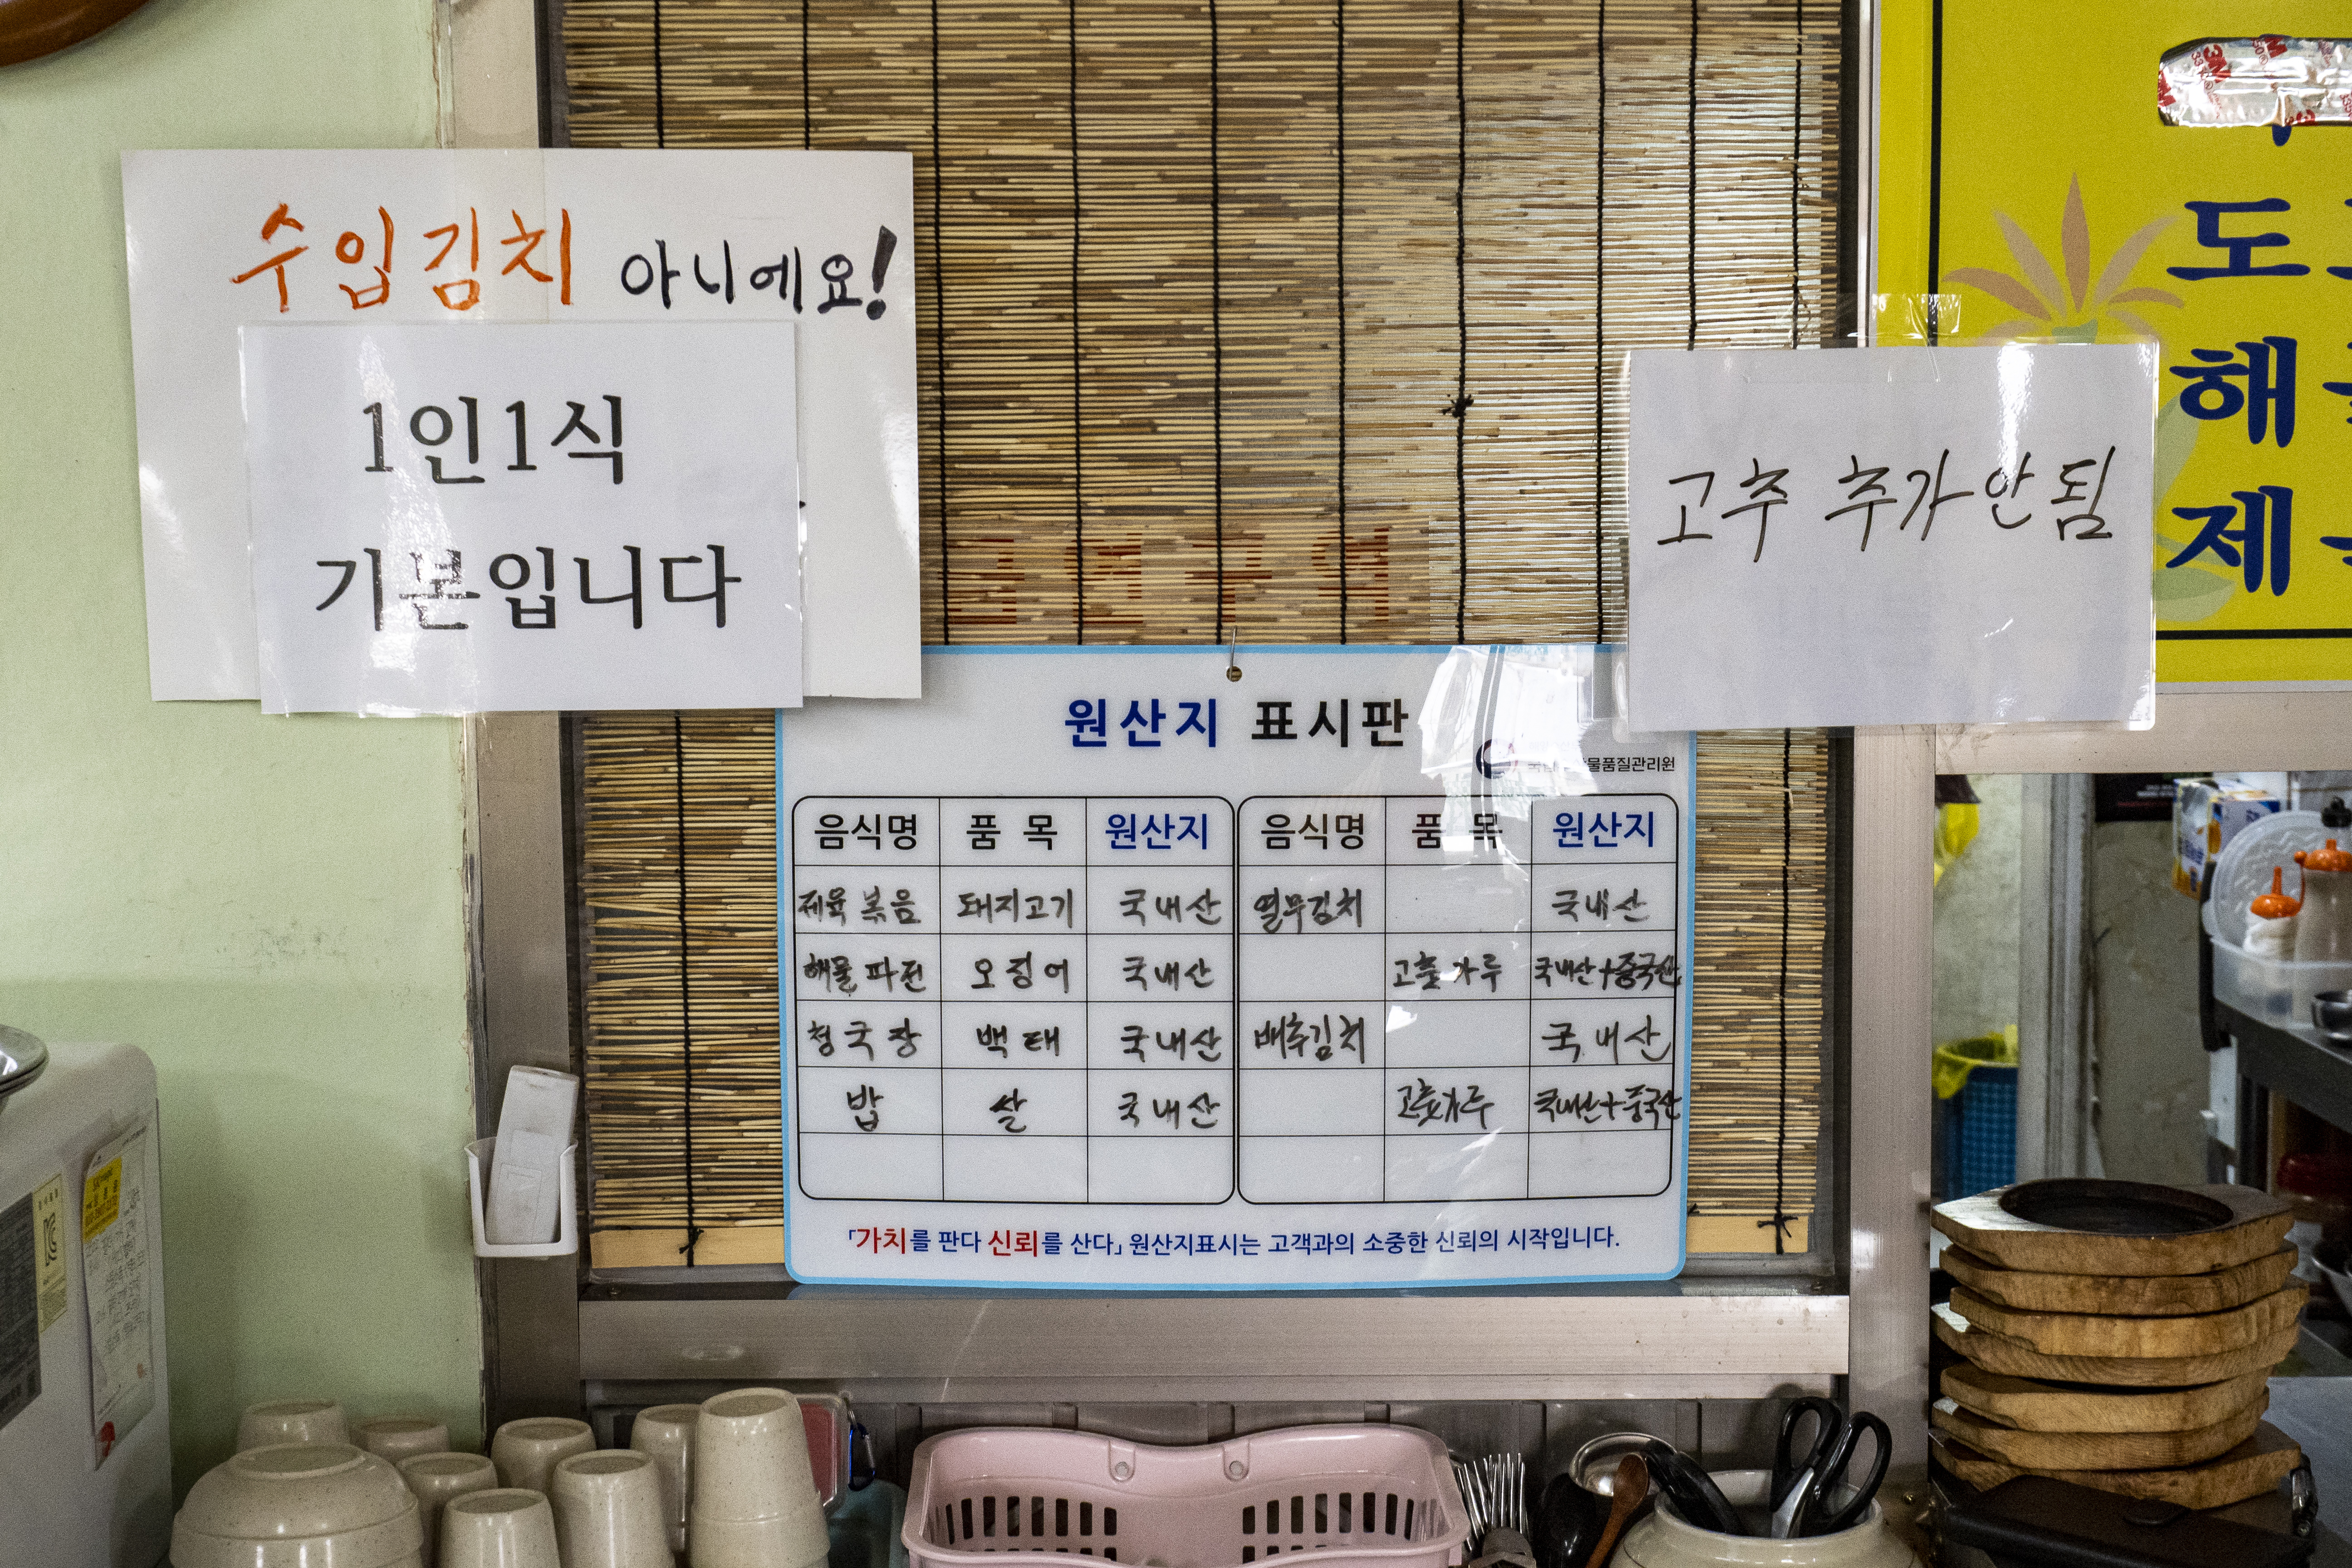 수입김치 아니에요!
1인1식
기본입니다
금연구역
고추 추가 안됨
도
해
제
원산지 표시판
물품질관리원
음식명 품 목 원산지 음식명 품 목 원산지
제육볶음 돼지고기 국내산 열무김치 국내산
해물파전 오징어 국내산 고춧가루 국내산+중국산
청국장 백태 국내산 배추김치 국내산
밥 쌀 국내산 고춧가루 국내산+중국산
「가치를 판다 신뢰를 산다」 원산지표시는 고객과의 소중한 신뢰의 시작입니다.